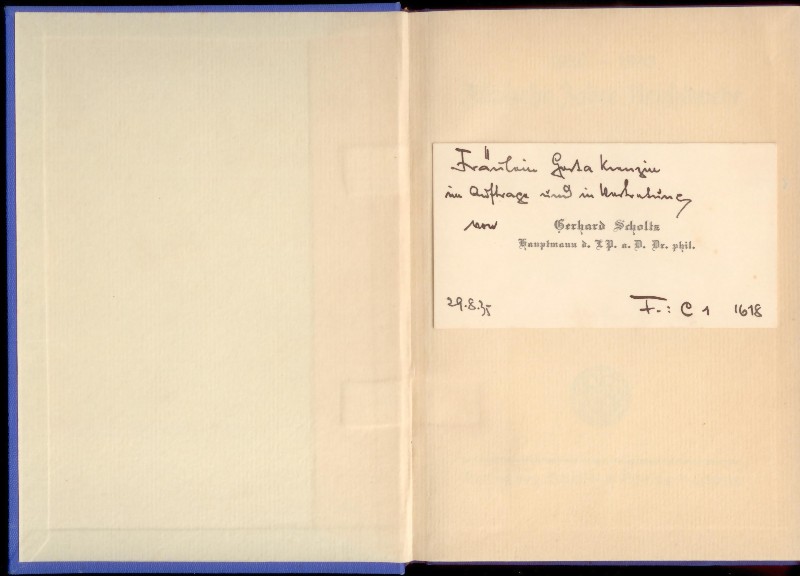 Fräulein Gerda Krenzin
im Auftrage und in Vertretung
von Gerhard Scholtz
Hauptmann d. L.P. a. D. Dr. phil.
29.8.35 F.: C 1 1618